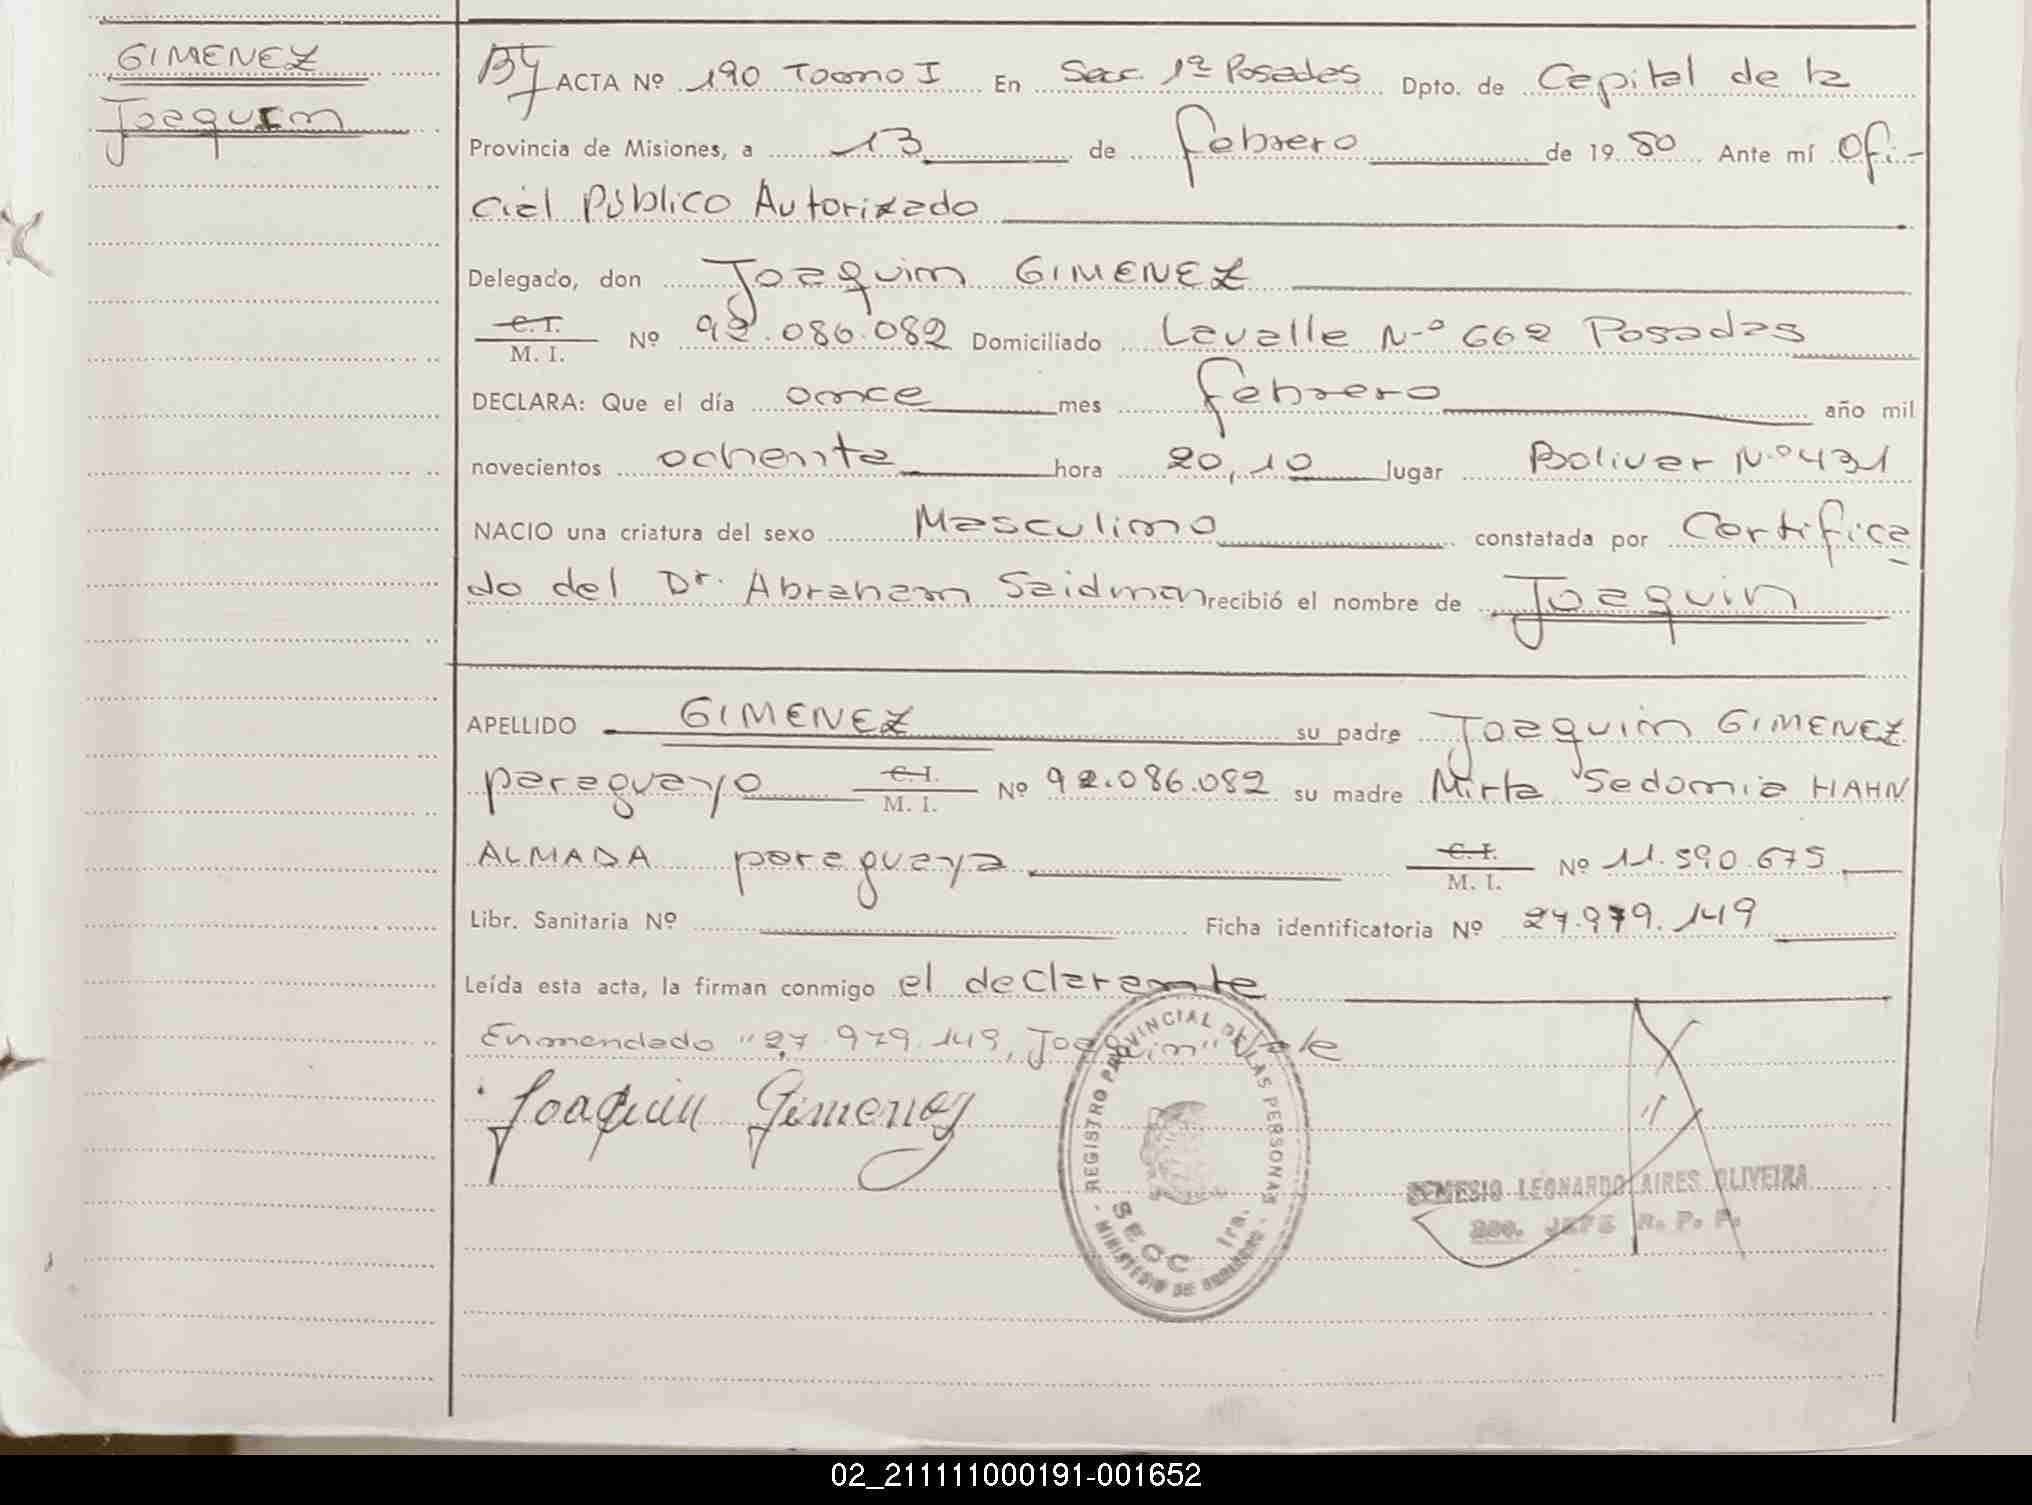 GIMENEZ
Joaquin
By ACTA Nº 190 Toomo I En Secc. 1ª Posadas Dpto. de Capital de la
Provincia de Misiones, a 13 de febrero de 1980 Ante mí Ofi-
cial Público Autorizado
Delegado, don Joaquin GIMENEZ
C.I.
M. I. Nº 92.086.082 Domiciliado Lavalle Nº 662 Posadas
DECLARA: Que el día once mes febrero año mil
novecientos ochenta hora 20,10 lugar Bolivar Nº 431
NACIO una criatura del sexo Masculino constatada por Certifica
do del Dr. Abraham Saidman recibió el nombre de Joaquin
APELLIDO GIMENEZ su padre Joaquin GIMENEZ
paraguayo C.I. M. I. Nº 92.086.082 su madre Mirta Sedonia HAHN
ALMADA paraguaya C.I. M. I. Nº 11.590.675
Libr. Sanitaria Nº Ficha identificatoria Nº 27.979.149
Leída esta acta, la firman conmigo el declarante
Enmendado "27.979.149, Joaquin" Vale
Joaquin Gimenez
REGISTRO PROVINCIAL DE LAS PERSONAS
SECC 1ra.
- MINISTERIO DE GOBIERNO -
NEMESIO LEONARDO AIRES OLIVEIRA
JEFE R. P. P.
02_211111000191-001652